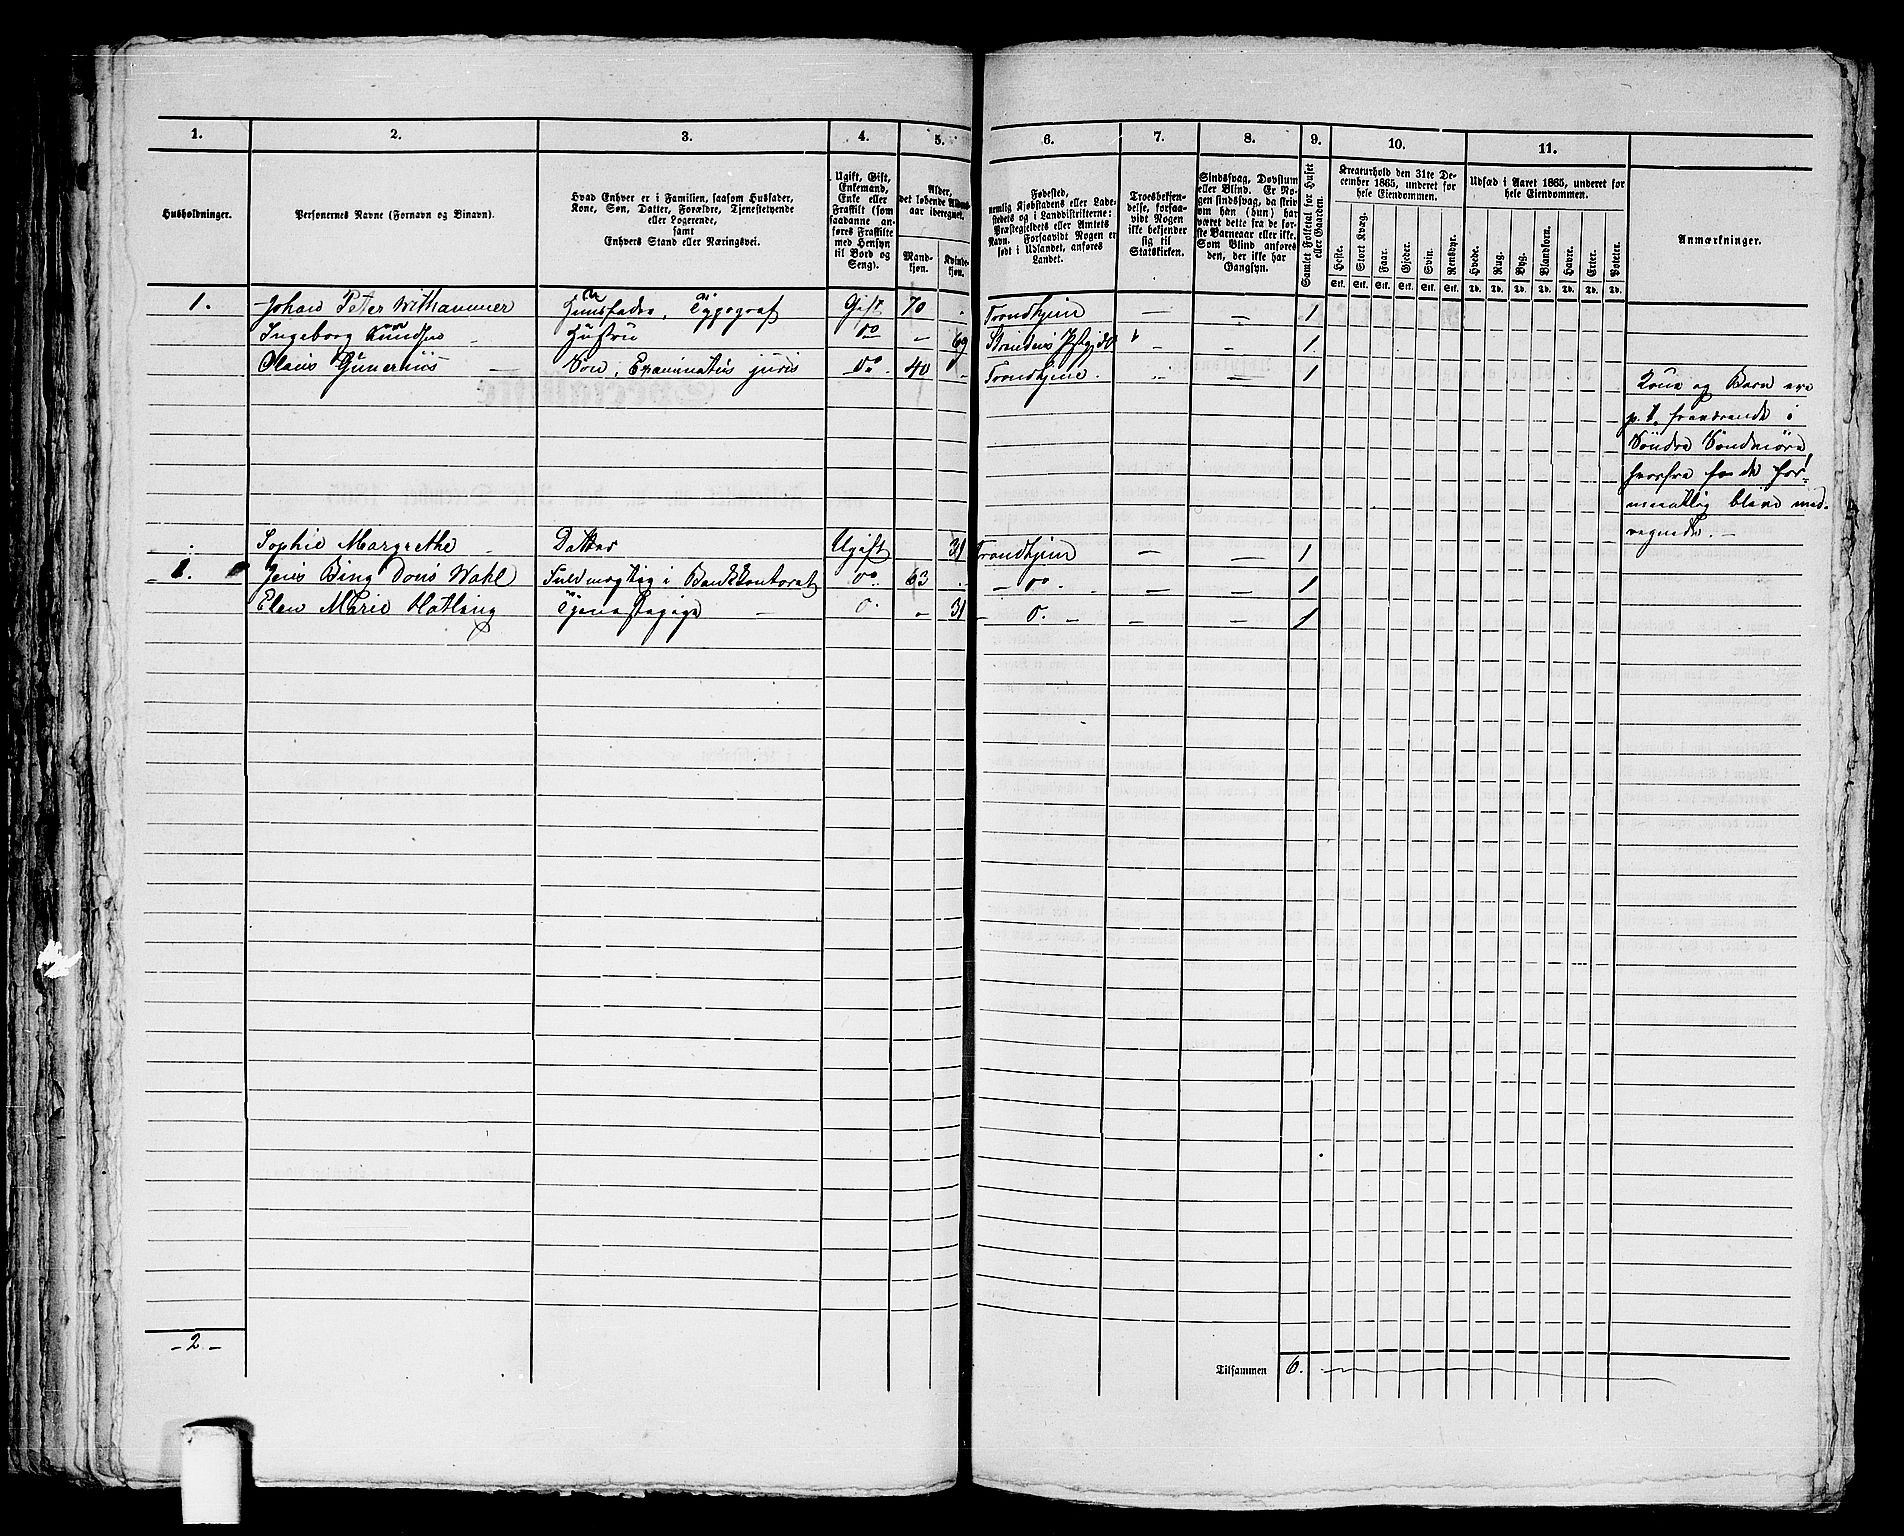 1. 2. 3. 4. 5. 6. 7. 8. 9. 10. 11.
Husholdninger.
Personernes Navne (Fornavn og Binavn).
Hvad Enhver er i Familien, saasom Husfader,
Kone, Søn, Datter, Forældre, Tjenestetyende
eller Logerende,
samt
Enhvers Stand eller Næringsvei.
Ugift, Gift,
Enkemand,
Enke eller
Fraskilt (som
saadanne an-
føres Fraskilte
med Hensyn
til Bord og
Seng).
Alder,
det løbende Alders-
aar iberegnet.
Mand-
kjøn.
Kvinde-
kjøn.
Fødested,
nemlig Kjøbstadens eller Lade-
stedets og i Landdistrikterne:
Præstegjeldets eller Amtets
Navn. Forsaavidt Nogen er
født i Udlandet, anføres
Landet.
Troesbekjen-
delse, forsaa-
vidt Nogen
ikke bekjender
sig til
Statskirken.
Sindssvag, Døvstum
eller Blind. Er No-
gen sindssvag, da skriv
om han (hun) har
været dette fra de før-
ste Barneaar eller ikke.
Som Blind anføres
den, der ikke har
Gangsyn.
Samlet Folketal for Huset
eller Gaarden.
Kreaturhold den 31te De-
cember 1865, underet for
hele Eiendommen.
Heste. Stort Kvæg. Faar. Gjeder. Svin. Rensdyr.
Stk. Stk. Stk. Stk. Stk. Stk.
Udsæd i Aaret 1865, underet for
hele Eiendommen.
Hvede. Rug. Byg. Blandkorn. Havre. Erter. Poteter.
Td. Td. Td. Td. Td. Td. Td.
Anmærkninger.
1. Johan Peter Withammer Huusfader, Typograf Gift 70 Trondhjem — — 1
Ingeborg Hustru do — 69 Strindens 1
Claus Gunerius Søn, Examinatus juris do 40 Trondhjem 1
Kone og Barn ere
p. t. fraværende i
Søndre Søndmøre
hvorfra de for-
mentlig blive med-
regnede. —
Sophie Margrethe Datter Ugift 31 Trondhjem — — 1
1. Jens Bing Dons Wahl Fuldmægtig i Bankkontoret do 63 do 1
Elen Marie Tjenestepige 31 — — 1
- 2 -
Tilsammen 6.